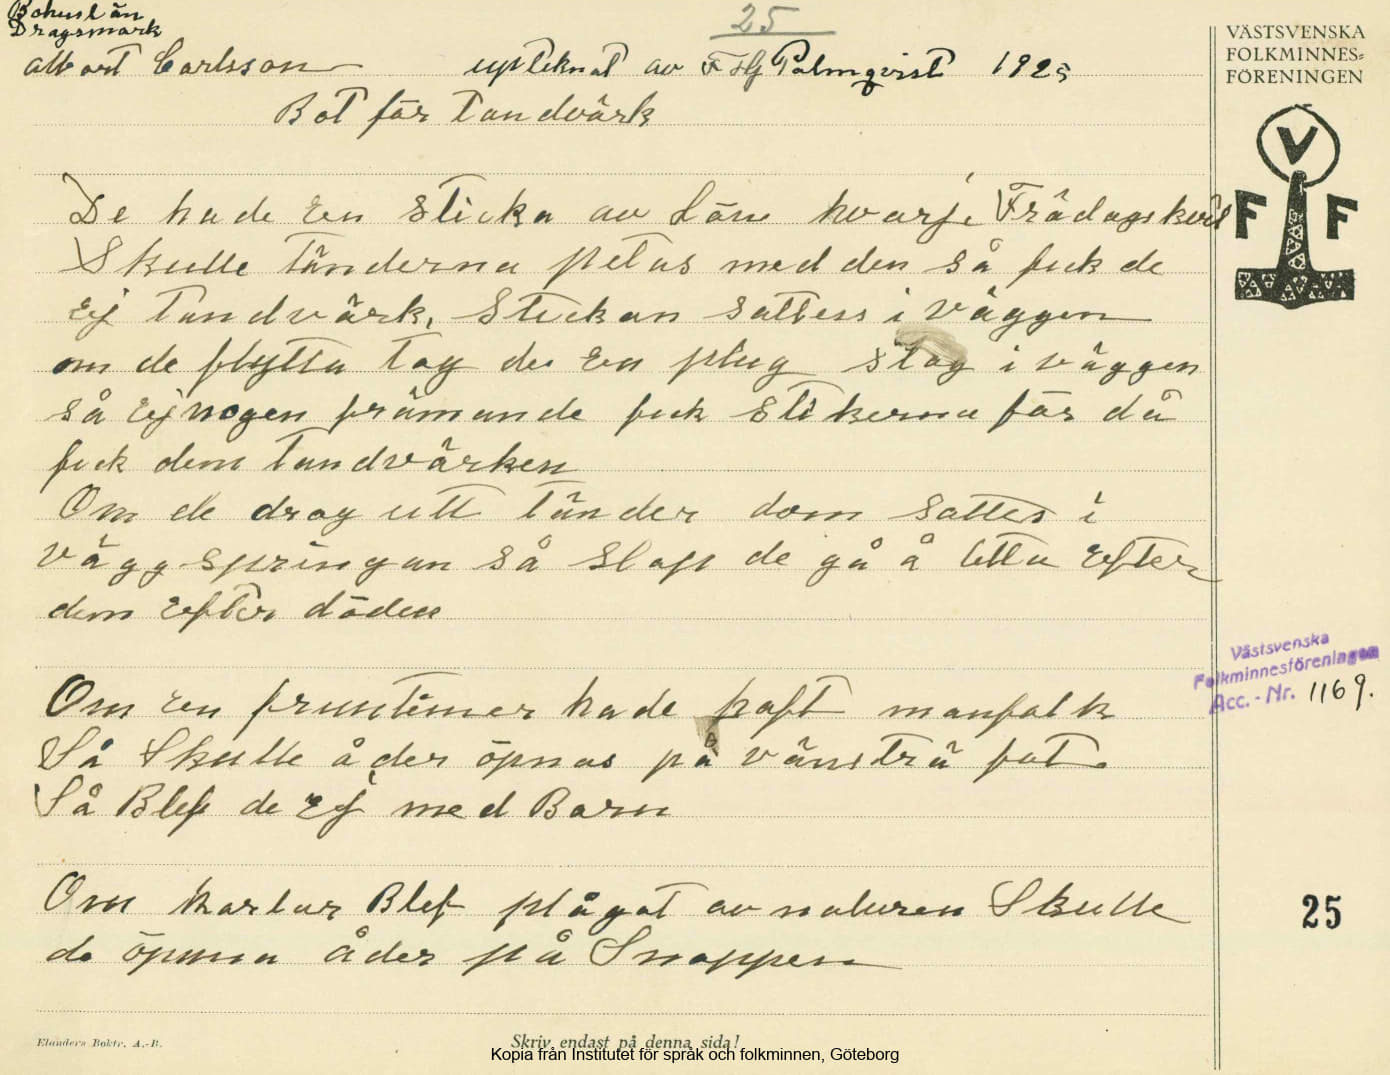 Bohuslän
Dragsmark
25
Albert Carlsson upteknat av F Hj Palmqvist 1925
Bot för Tandvärk
De hade En Sticka av Lön hvarje Frädagskväl
Skulle Tänderna petas med den så fick de
Ej Tandvärk, Stickan sattess i väggen
om de flytta tog de En plug slog i väggen
så Ej nogen främande fick stikerna för då
fick dem Tandvärken
Om de drog utt Tänder dom sattes i
väggspringan så slap de gå å letta Efter
dem Efter döden
Om En fruntimer hade haft manfolk
Så Skulle åder öpnas på vänsträ fot
Så Blef de Ej med Barn
Om karlar Blef plågat av naturen Skulle
de öpnna åder på Snoppen
VÄSTSVENSKA
FOLKMINNES=
FÖRENINGEN
V
F F
Västsvenska
Folkminnesföreningen
Acc.-Nr. 1169.
25
Elanders Boktr. A.-B.
Skriv endast på denna sida!
Kopia från Institutet för språk och folkminnen, Göteborg